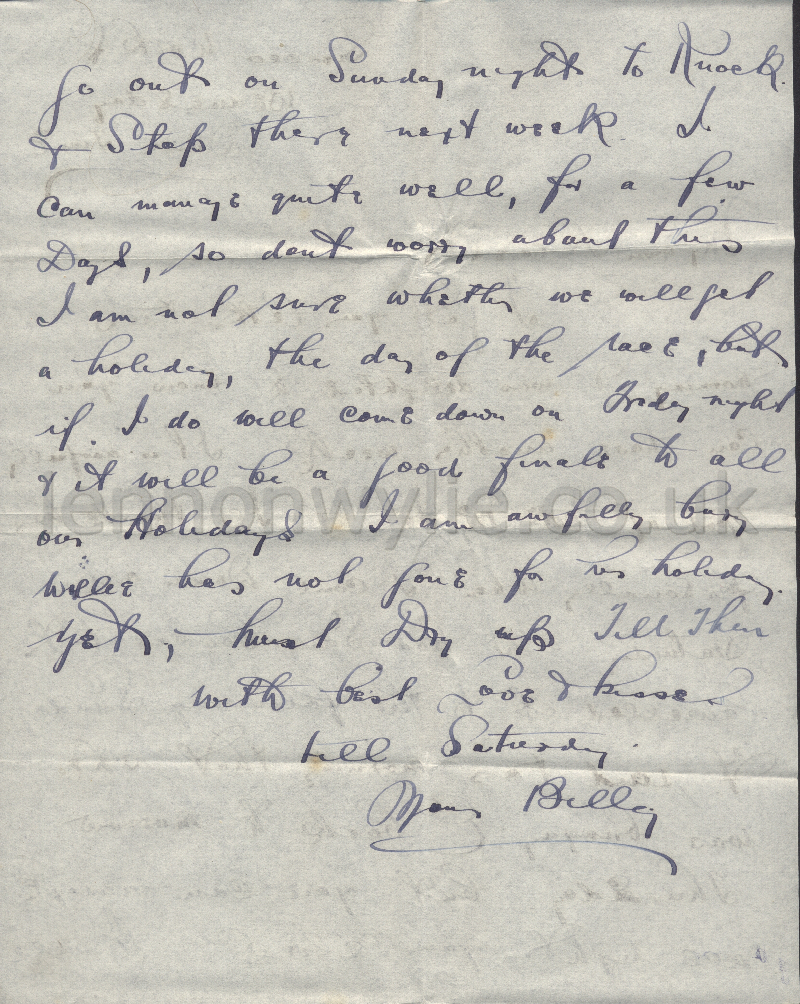 go out on Sunday night to Knock
& Stop there next week. I
can manage quite well, for a few
Days, so dont worry about this
I am not sure whether we will get
a holiday, the day of the race, but
if I do will come down on Friday night
& it will be a good finale to all
our Holidays I am awfully busy
lennonwylie.co.uk
Willie has not gone for his holiday
yet, must Dry up Till Then
with best Love & kisses
till Saturday.
Yours Billy